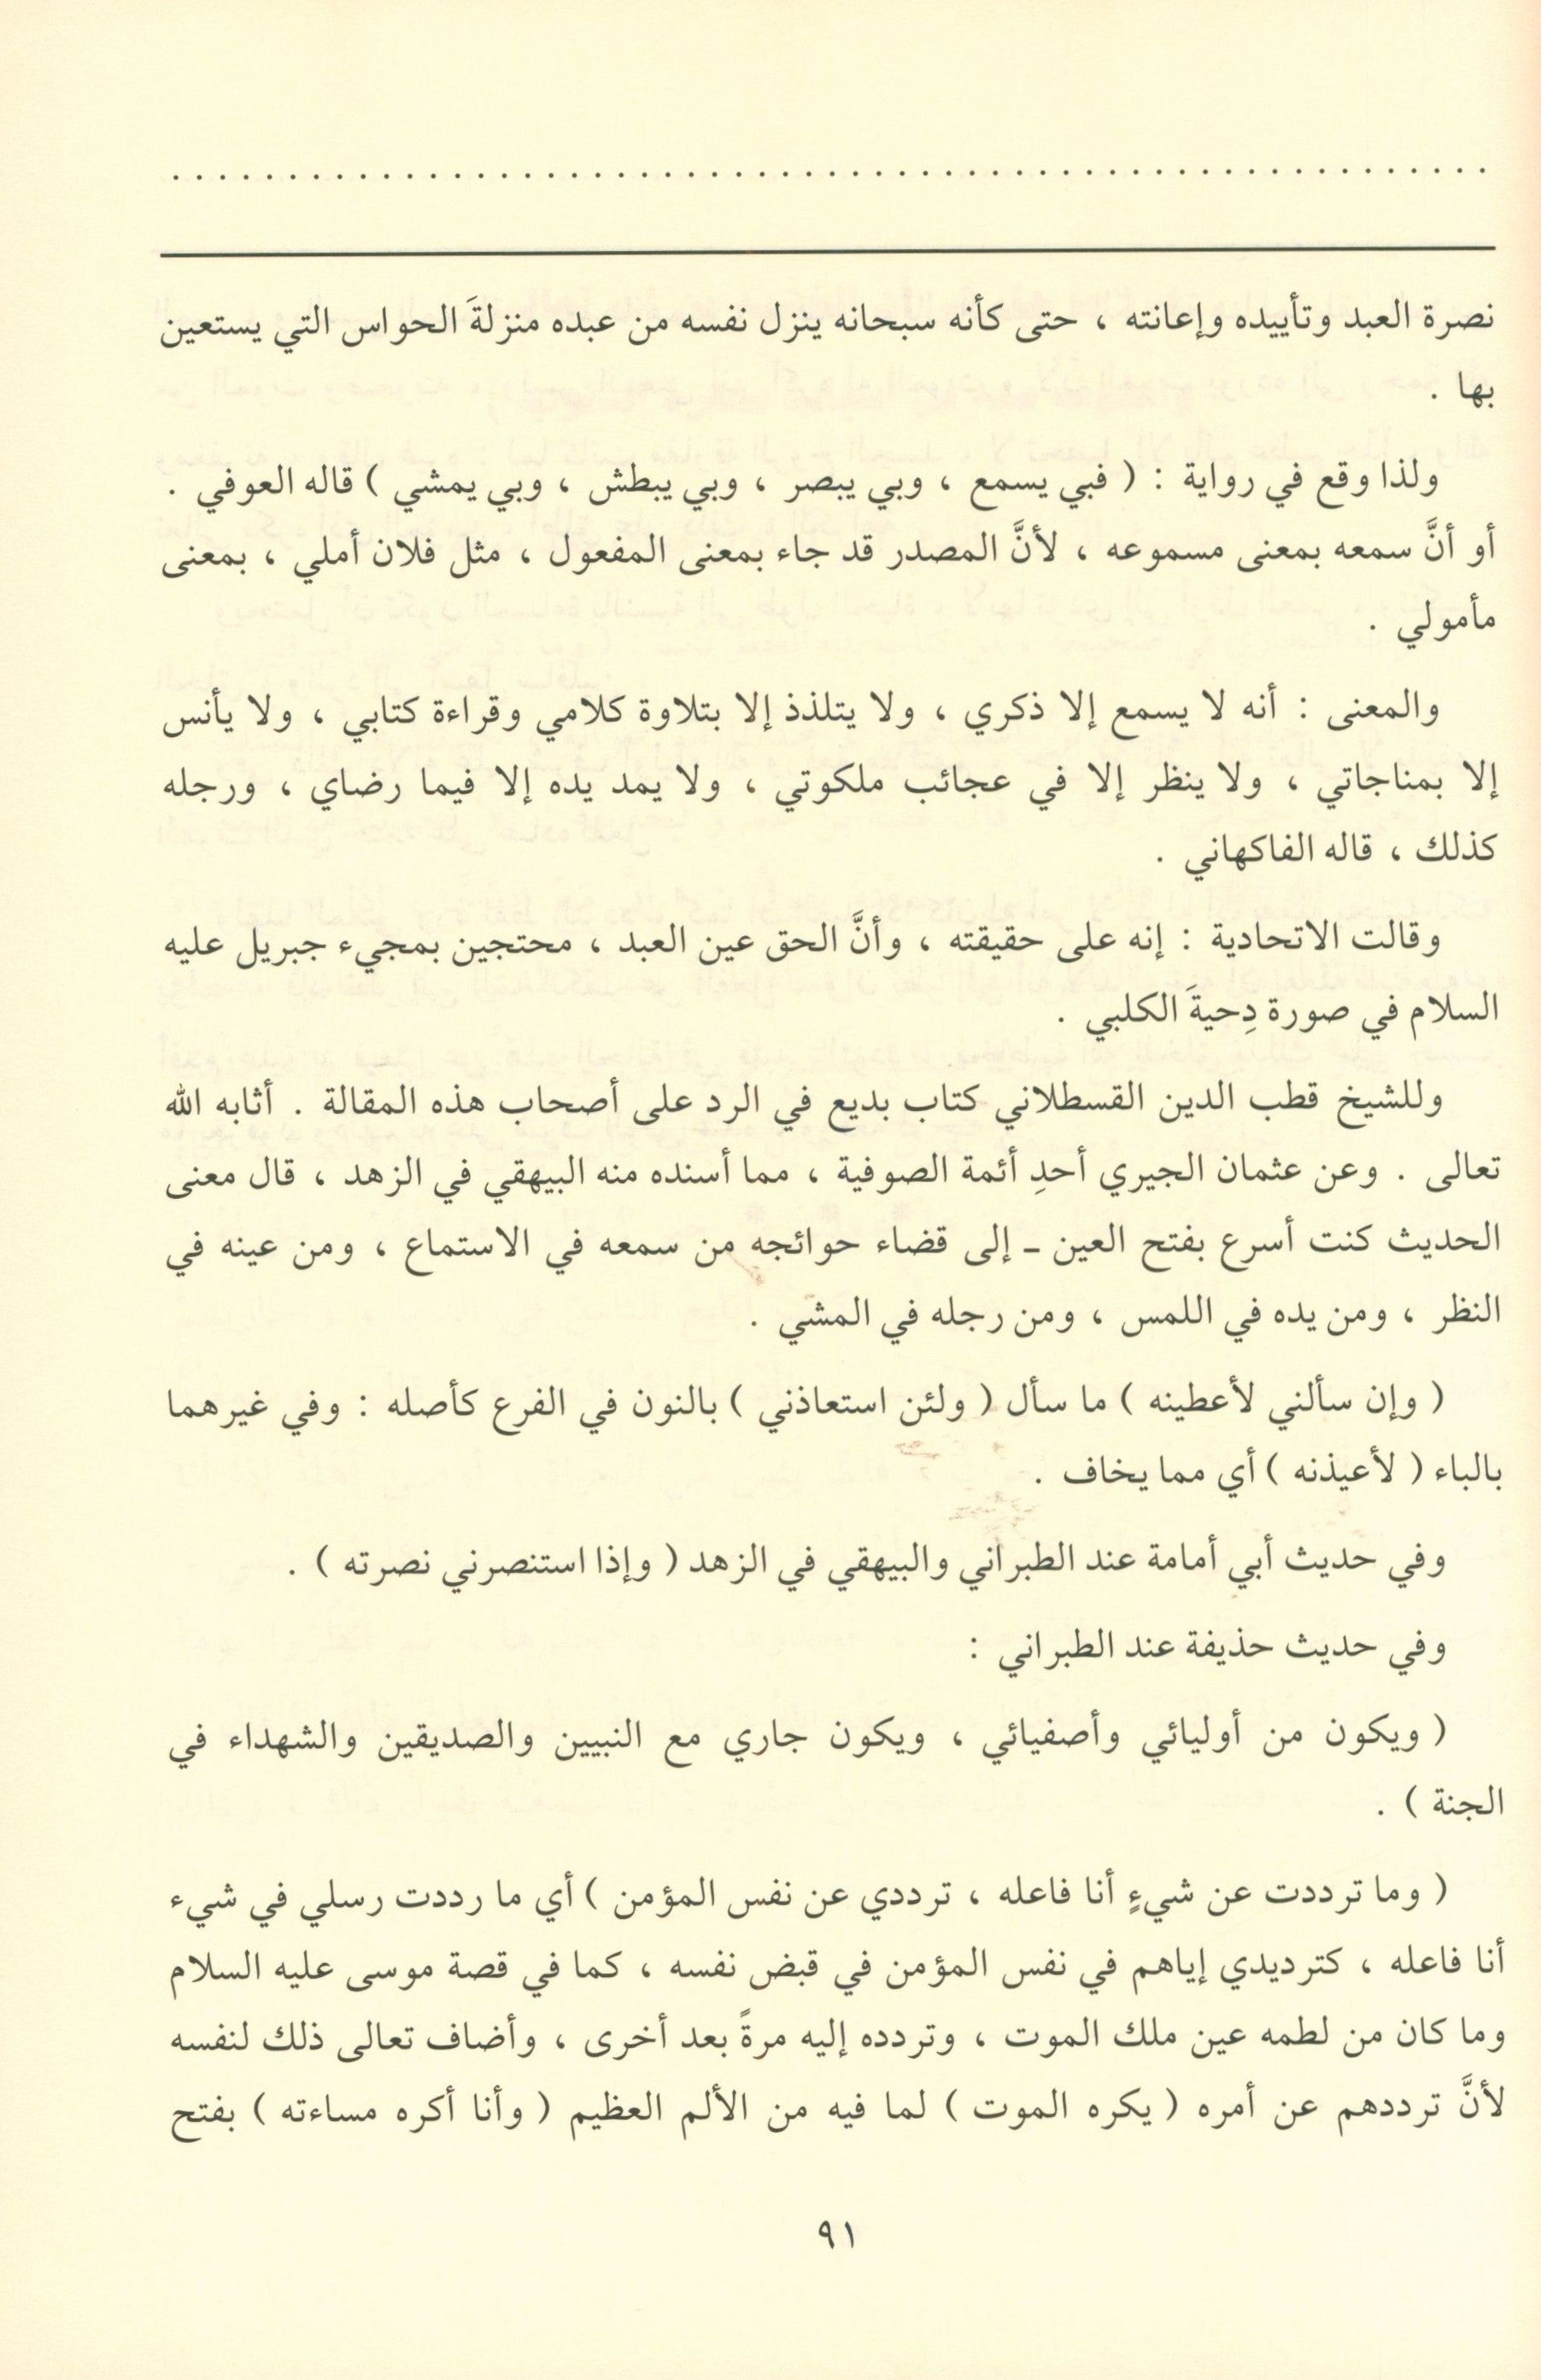 نصرة العبد وتأييده وإعانته ، حتى كأنه سبحانه ينزل نفسه من عبده منزلةَ الحواس التي يستعين
بها .
ولذا وقع في رواية : ( فبي يسمع ، وبي يبصر ، وبي يبطش ، وبي يمشي ) قاله العوفي .
أو أنَّ سمعه بمعنى مسموعه ، لأنَّ المصدر قد جاء بمعنى المفعول ، مثل فلان أملي ، بمعنى
مأمولي .
والمعنى : أنه لا يسمع إلا ذكري ، ولا يتلذذ إلا بتلاوة كلامي وقراءة كتابي ، ولا يأنس
إلا بمناجاتي ، ولا ينظر إلا في عجائب ملكوتي ، ولا يمد يده إلا فيما رضاي ، ورجله
كذلك ، قاله الفاكهاني .
وقالت الاتحادية : إنه على حقيقته ، وأنَّ الحق عين العبد ، محتجين بمجيء جبريل عليه
السلام في صورة دِحيةَ الكلبي .
وللشيخ قطب الدين القسطلاني كتاب بديع في الرد على أصحاب هذه المقالة . أثابه الله
تعالى . وعن عثمان الجيري أحدِ أئمة الصوفية ، مما أسنده منه البيهقي في الزهد ، قال معنى
الحديث كنت أسرع بفتح العين ـ إلى قضاء حوائجه من سمعه في الاستماع ، ومن عينه في
النظر ، ومن يده في اللمس ، ومن رجله في المشي .
( وإن سألني لأعطينه ) ما سأل ( ولئن استعاذني ) بالنون في الفرع كأصله : وفي غيرهما
بالباء ( لأعيذنه ) أي مما يخاف .
وفي حديث أبي أمامة عند الطبراني والبيهقي في الزهد ( وإذا استنصرني نصرته ) .
وفي حديث حذيفة عند الطبراني :
( ويكون من أوليائي وأصفيائي ، ويكون جاري مع النبيين والصديقين والشهداء في
الجنة ) .
( وما ترددت عن شيءٍ أنا فاعله ، ترددي عن نفس المؤمن ) أي ما رددت رسلي في شيء
أنا فاعله ، كترديدي إياهم في نفس المؤمن في قبض نفسه ، كما في قصة موسى عليه السلام
وما كان من لطمه عين ملك الموت ، وتردده إليه مرةً بعد أخرى ، وأضاف تعالى ذلك لنفسه
لأنَّ ترددهم عن أمره ( يكره الموت ) لما فيه من الألم العظيم ( وأنا أكره مساءته ) بفتح
٩١